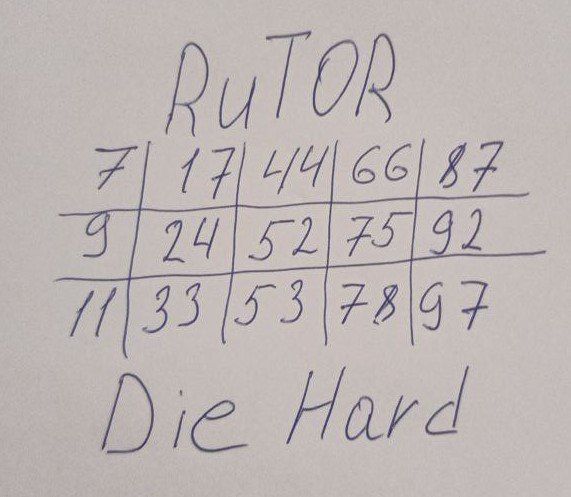 RuTOR
7 17 44 66 87
9 24 52 75 92
11 33 53 78 97
Die Hard